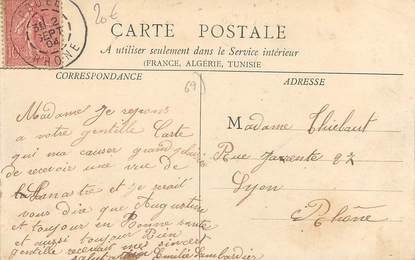 20€
RHONE
CARTE POSTALE
A utiliser seulement dans le Service intérieur
(FRANCE, ALGÉRIE, TUNISIE
CORRESPONDANCE
ADRESSE
69
Madame Je repons
a votre gentille Carte
qui ma causer grand plaisir
de recevoir une vue de
Lamastre et je vait
vous dire que Augustine
et toujour en Bonne sante
et aussi toujour Bien
gentille recevait mes sincert
Emilie
Madame Thiebaut
Rue 27
Lyon
Rhône